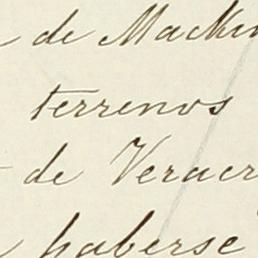 de Mackin
terrenos
de Veracr
haberse